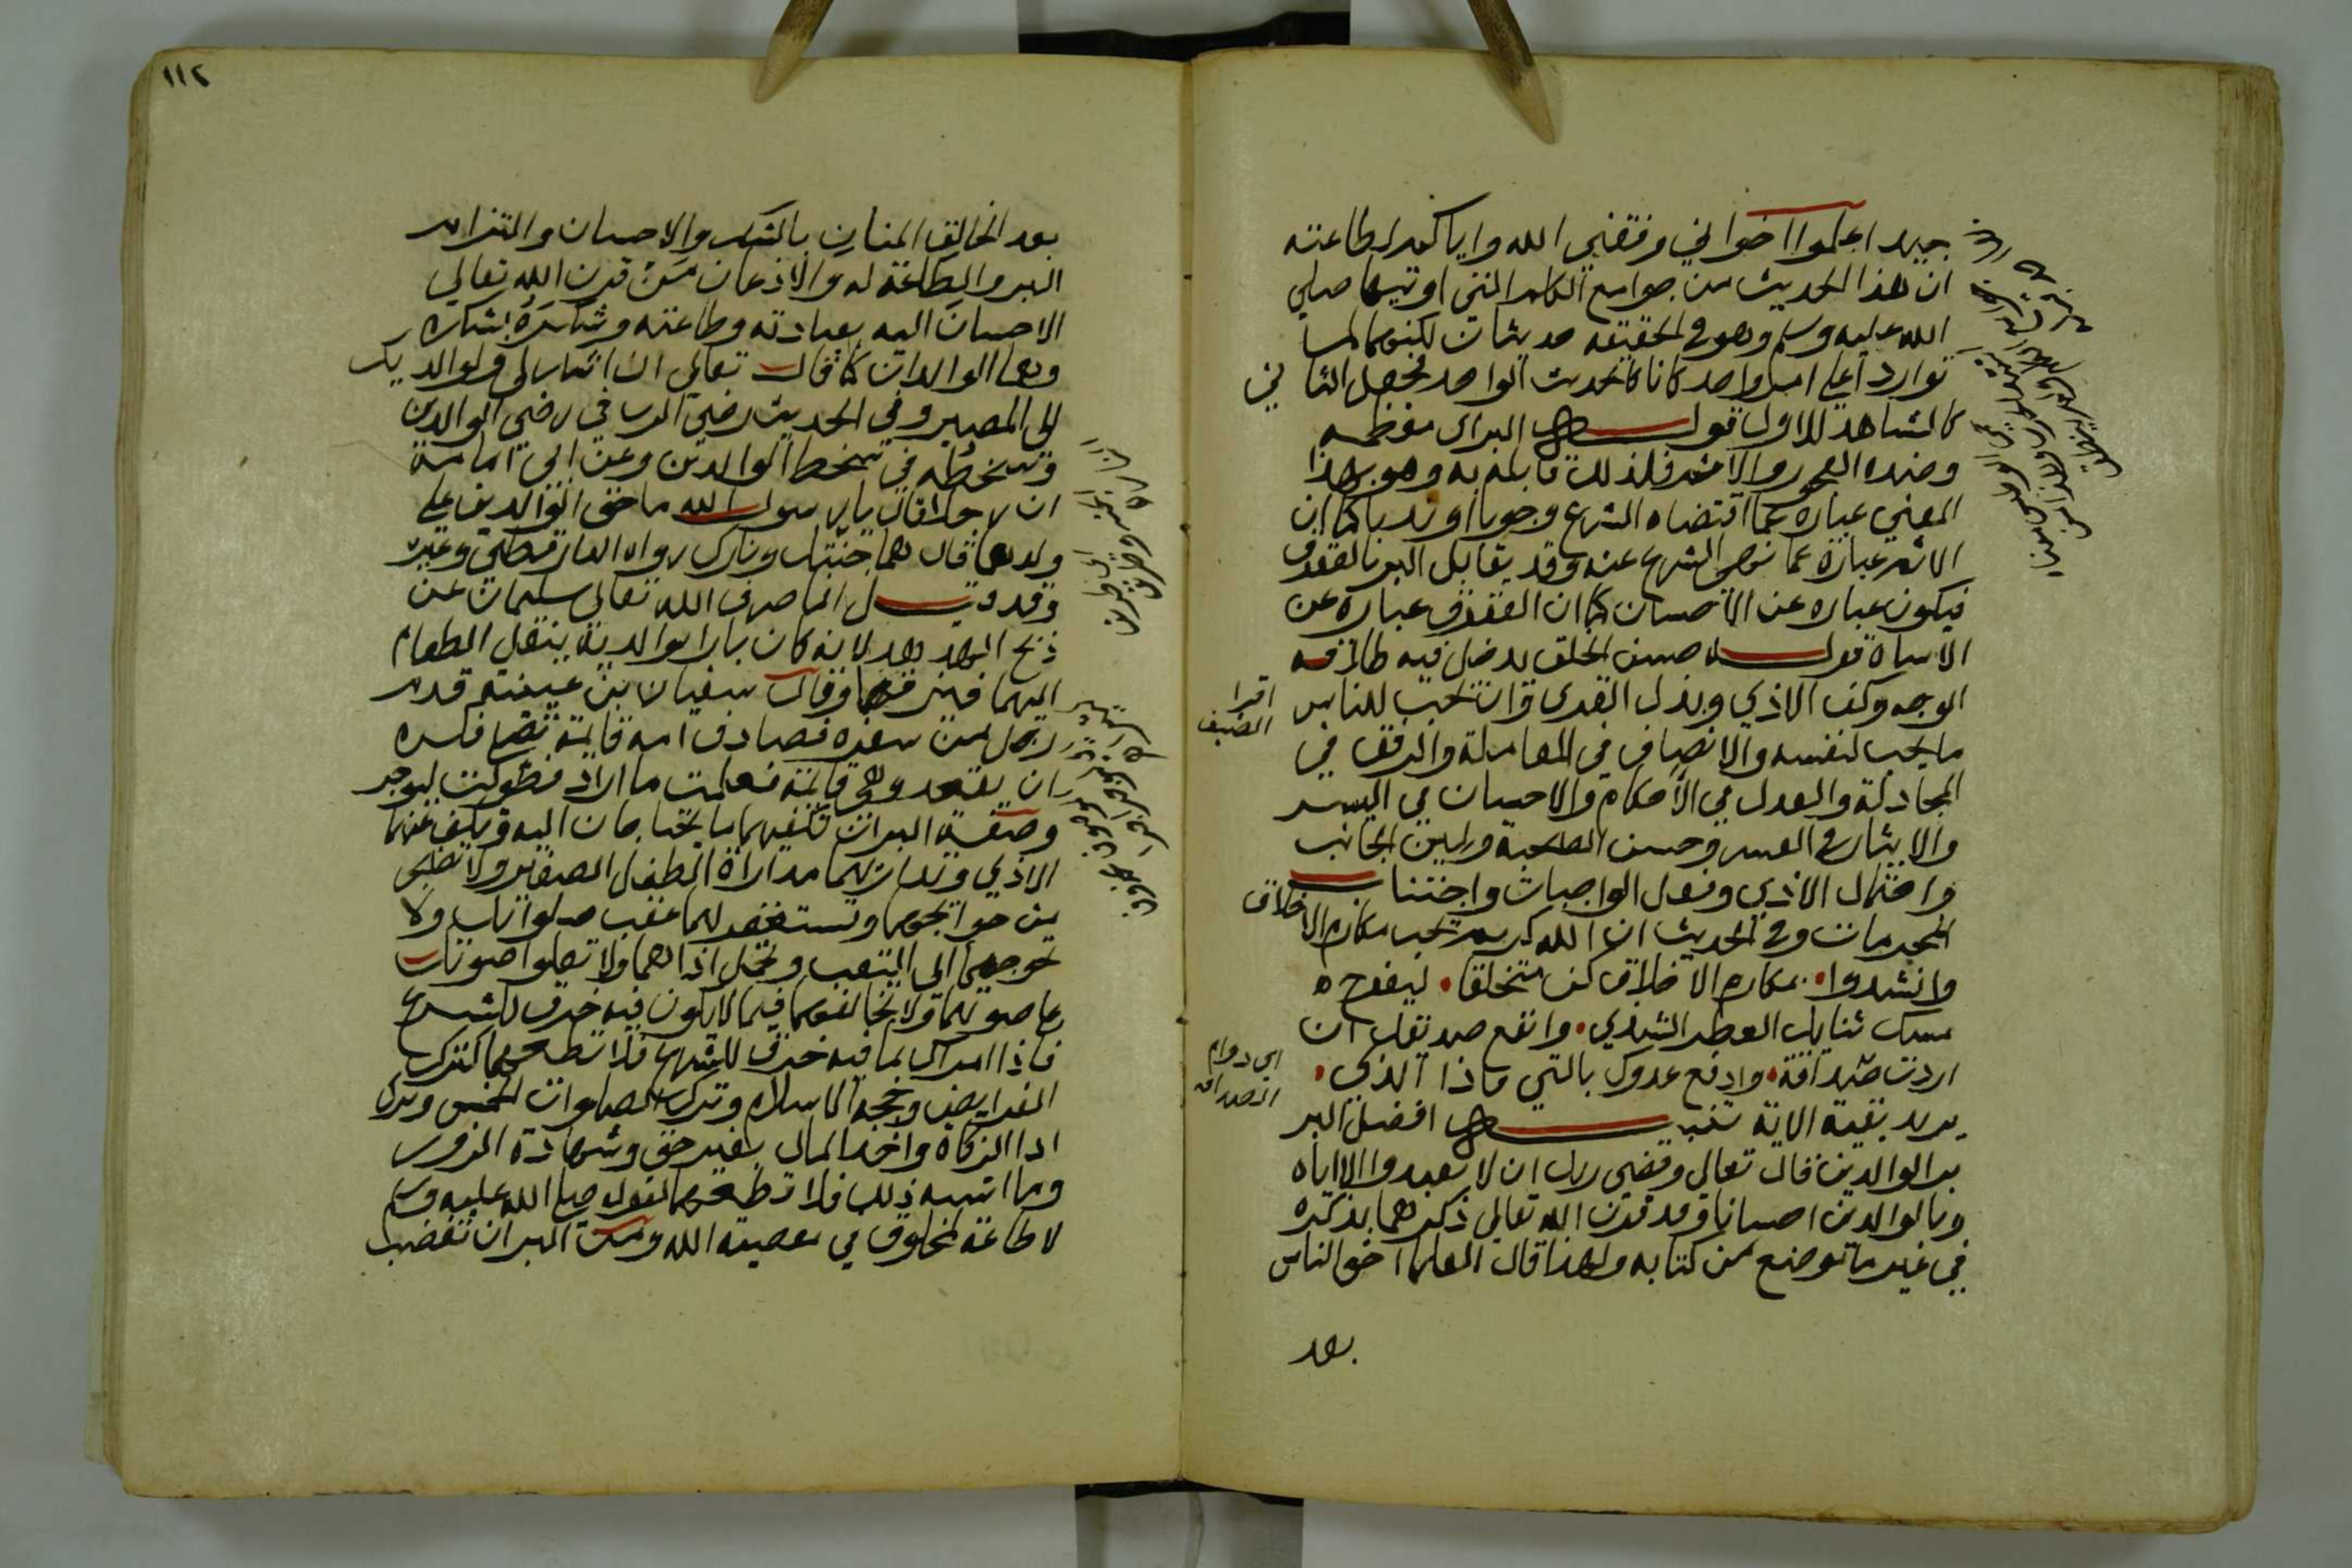 جيد اعلموا اخواني وفقني الله واياكم لطاعته
ان هذا الحديث من جوامع الكلم التي اوتيها صلي
الله عليه وسلم وهو في الحقيقة حديثان لكنهما لما
تواردا علي امر واحد كانا كالحديث الواحد فجعل الثاني
كالشاهد للاول قوله البر اي معظمه
وضده الفجور والاثم فلذلك قابله به وهو بهذا
المعني عبارة عما اقتضاه الشرع وجوبا او ندبا كما ان
الاثم عبارة عما نهي الشرع عنه وقد يقابل البر بالعقوق
فيكون عبارة عن الاحسان كما ان العقوق عبارة عن
الاساة قوله حسن الخلق يدخل فيه طلاقه
الوجه وكف الاذي وبذل القري وان تحب للناس
اقرا
الضيف
ما تحب لنفسه والانصاف في المعاملة والرفق في
المجادلة والعدل في الاحكام والاحسان في اليسر
والايثار في العسر وحسن الصحبة ولين الجانب
واحتمال الاذي وفعل الواجبات واجتناب
المحرمات وفي الحديث ان الله كريم يحب مكارم الاخلاق
وانشدوا بمكارم الاخلاق كن متخلقا ليفوح
مسك ثنايك العطر الشذي وانفع صديقك ان
اردت صداقة وادفع عدوك بالتي فاذا الذي
اي دوام
الصداقه
يريد بقية الاية تنبيه افضل البر
بر الوالدين قال تعالي وقضي ربك ان لا تعبدوا الا اياه
وبالوالدين احسانا وقد قرن الله تعالي ذكرهما بذكره
في غير ما موضع من كتابه ولهذا قال العلما احق الناس
بعد
١١٢
بعد الخالق المنان بالشكر والاحسان والتزام
البر والطاعة له والاذعان من قرن الله تعالي
الاحسان اليه بعبادته وطاعته وشكره بشكره
وهما الوالدان كما قال تعالي ان اشكر لي ولوالديك
الي المصير وفي الحديث رضي الرب في رضي الوالدين
وسخطه في سخط الوالدين وعن ابي امامة
ان رجلا قال يا رسول الله ما حق الوالدين علي
ولدهما قال هما جنتك ونارك رواه الدارقطني وغيره
وقد قيل انما صرف الله تعالي سليمان عن
ذبح الهدهد لانه كان بارا بوالديه ينقل الطعام
اليهما وقال سفيان بن عيينة قدم
رجل من سفره فصادف امه قايمة تصلي فكره
ان يقعد وهي قايمة فعلمت ما اراد فطولت ليوجر
وصفة البر ان تكفيهما ما يحتاجان اليه وتكف عنهما
الاذي وتداريهما مداراة الطفل الصغير ولا تضجر
من حوايجهما وتستغفر لهما عقب صلواتك ولا
تحوجهما الي التعب وتحمل اذاهما ولا تعلوا صوتك
علي صوتهما ولا تخالفهما فيما لا يكون فيه خرق للشرع
فاذا امراك بما فيه خرق للشرع فلا تطعهما كترك
الفرايض وحجة الاسلام وترك الصلوات الخمس وترك
ادا الزكاة واخذ المال بغير حق وشهادة الزور
وما اشبه ذلك فلا تطعهما لقوله صلي الله عليه وسلم
لا طاعة لمخلوق في معصية الله ومن البر ان تغضب